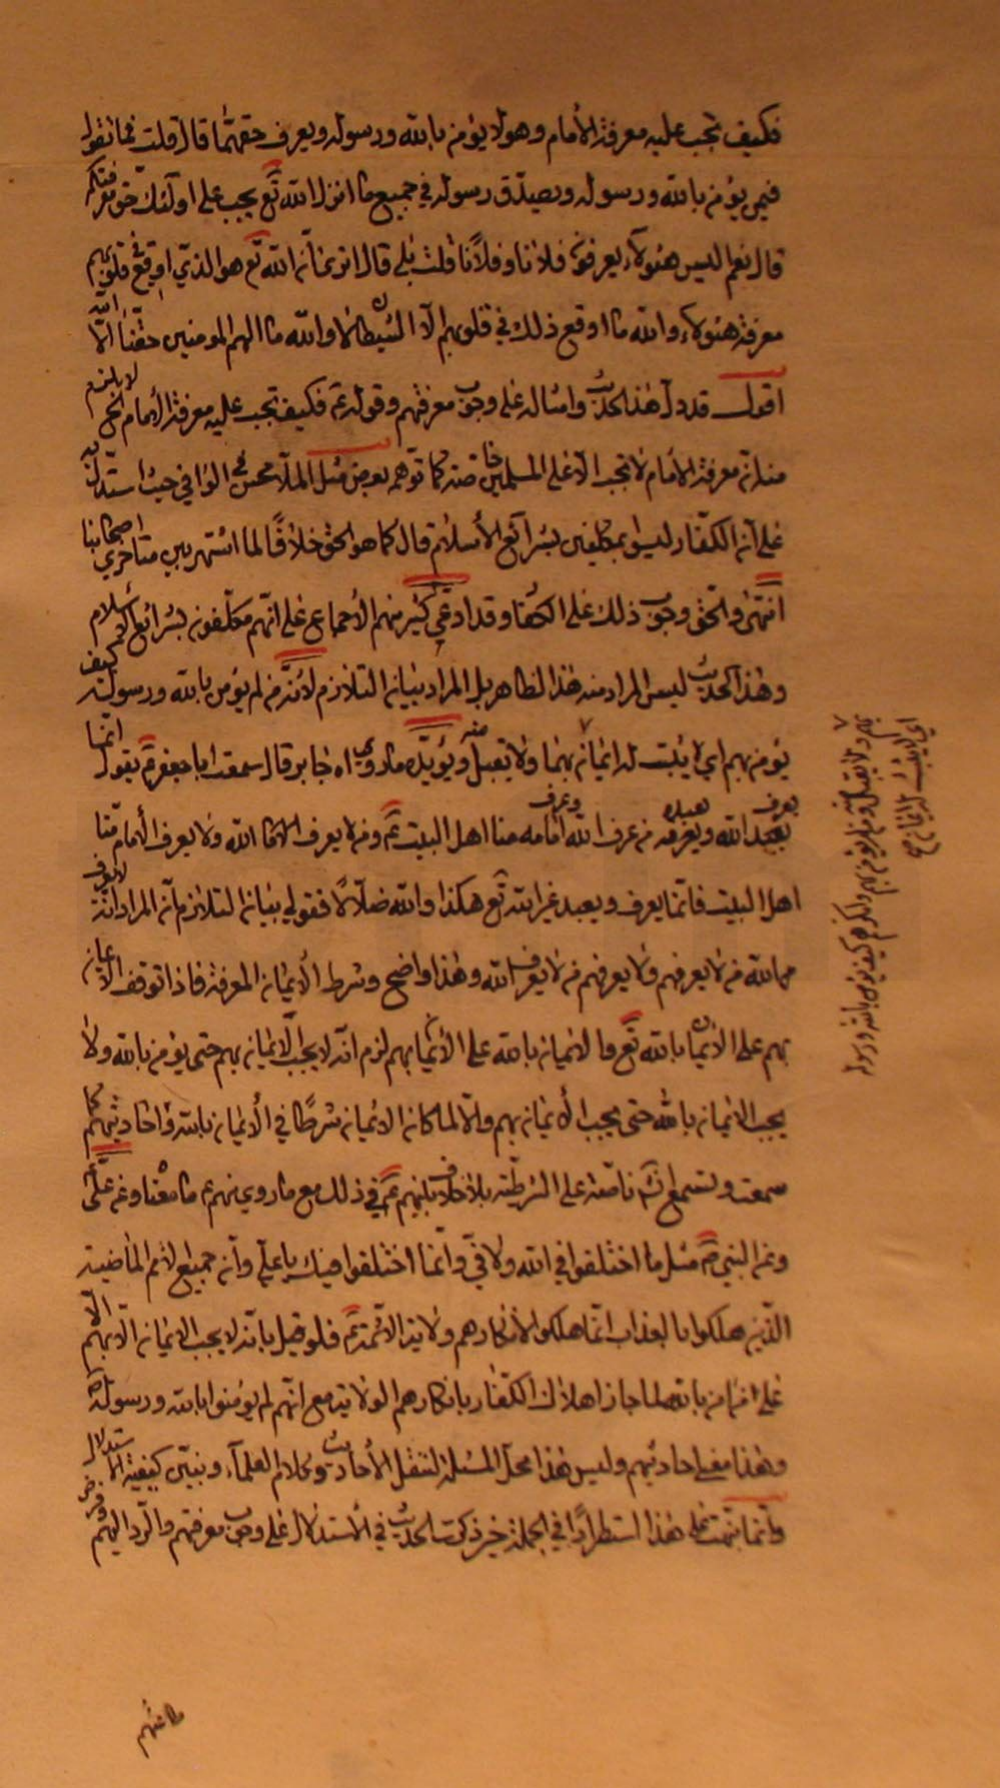 فكيف تجب عليه معرفة الأمام وهو لا يؤمن بالله ورسوله ويعرف حقهما قال قلت فما تقول
فيمن يؤمن بالله ورسوله ويصدّق رسوله في جميع ما انزل الله تع يجب على اولئك حق معرفتكم
قال نعم اليس هئولاء يعرفون فلانا وفلانا قلت بلى قال اترى انّ الله تع هو الذي اوقع في قلوبهم
معرفة هئولاء والله ما اوقع ذلك في قلوبهم الّا الشيطان لا والله ما الهم المومنين حقّنا الّا الله
اقول قد دلّ هذا الحديث وامثاله على وجوب معرفتهم وقوله ع فكيف تجب عليه معرفة الأمام الخ لا يلزم
منه انّ معرفة الأمام لا تجب الّا على المسلمين خاصّة كما توهّمه بعض مثل الملّا محسن في الوافي حيث استدلّ به
على انّ الكفّار ليسوا بمكلّفين بشرائع الأسلام قال كما هو الحق خلافًا لما اشتهر بين متاخري اصحابنا
انتهى والحق وجوب ذلك على الكفار وقد ادّعى كثير منهم الأجماع على انّهم مكلّفون بشرائع الأسلام
وهذا الحديث ليس المراد منه هذا الظاهر بل المراد بيان التلازم لانّه من لم يؤمن بالله ورسوله كيف
يؤمن بهم اي لا يثبت له ايمان بهما ولا تقبل منه ويؤيّده ما رواه جابر قال سمعت ابا جعفر ع يقول انّما
يعبد الله ويعرفه من عرف الله وعرف امامه منا اهل البيت ع ومن لا يعرف الله ولا يعرف الأمام منّا
اهل البيت فانّما يعرف ويعبد غير الله تع هكذا والله ضلالًا فقولي بيان التلازم انّ المراد انّه لا يعرف
الله من لا يعرفهم ولا يعرفهم من لا يعرف الله وهذا واضح وشرط الأيمان المعرفة فاذا توقف الأيمان
بهم على الأيمان بالله تع والأيمان بالله على الأيمان بهم لزم انّه لا يجب الأيمان بهم حتى يؤمن بالله ولا
يجب الأيمان بالله حتى يجب الأيمان بهم والّا لما كان الأيمان شرطًا في الأيمان بالله واحاديثهم كما
سمعت وتسمع ناصّة على الشرطيّة بلا خلاف بينهم ع في ذلك مع ما روي عنهم ع ما معناه وعن علي
وعن النبي ص مثل ما اختلفوا في الله ولا فيّ وانّما اختلفوا فيك يا علي وانّ جميع الأمم الماضية
الّذين هلكوا بالعذاب انّما هلكوا لأنكارهم ولاية الأئمة ع فلو قيل بانّه لا يجب الأيمان بهم الّا
على من امن بالله لما جاز اهلاك الكفّار بانكارهم الولاية مع انّهم لم يؤمنوا بالله ورسوله
وهذا معنى احاديثهم وليس هذا محلّ المسئلة لننقل الأحاديث وكلام العلماء ونبيّن كيفية الأستدلال
وانّما نبّهت على هذا استطرادًا في الجملة حين ذكرت الحديث في الأستدلال على وجوب معرفتهم والرّد اليهم وفرض
طاعتهم